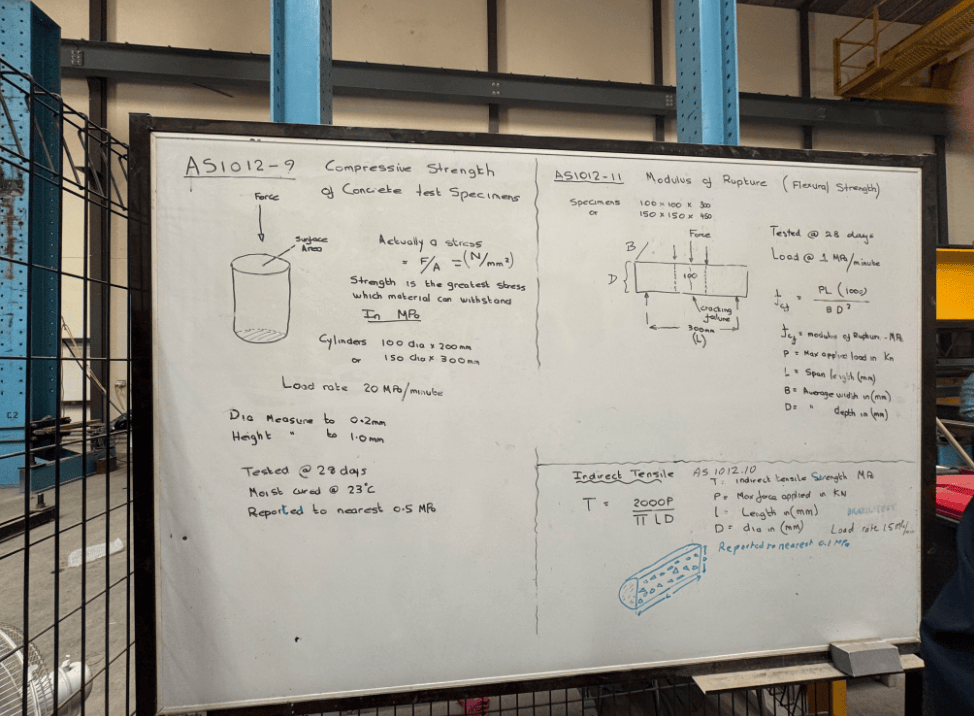 AS1012-9 Compressive Strength
of Concrete test Specimens
Force
Surface
Area
Actually a stress
= F/A = (N/mm²)
Strength is the greatest stress
which material can withstand
In MPa
Cylinders 100 dia x 200mm
or 150 dia x 300mm
Load rate 20 MPa/minute
Dia Measure to 0.2mm
Height " to 1.0mm
Tested @ 28 days
Moist cured @ 23°C
Reported to nearest 0.5 MPa
AS1012-11 Modulus of Rupture (Flexural Strength)
Specimens 100 x 100 x
or 150 x 150 x 450
Force
B
D
100
cracking
failure
300mm
(L)
Tested @ 28 days
Load @ 1 MPa/minute
fcf = PL (1000)
BD²
fcf = modulus of Rupture - MPa
P = Max applied load in Kn
L = Span length (mm)
B = Average width in (mm)
D = " depth in (mm)
Indirect Tensile AS 1012.10
T = 2000P
π LD
T = indirect tensile Strength MPa
P = Max force applied in KN
L = Length in (mm)
D = dia in (mm)
Load rate 1.5 MPa/min
Reported to nearest 0.1 MPa
D
L
C2